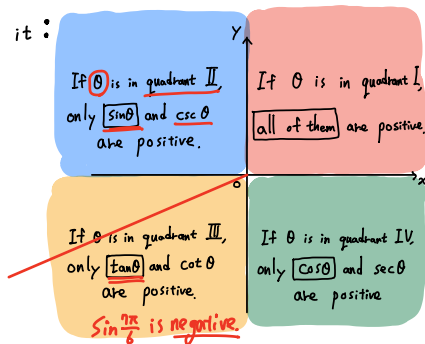 it:
Y
If θ is in quadrant II,
only sinθ and csc θ
are positive.
If θ is in quadrant I,
all of them are positive.
O
x
If θ is in quadrant III,
only tanθ and cotθ
are positive.
If θ is in quadrant IV,
only cosθ and secθ
are positive
sin 7π/6 is negative.